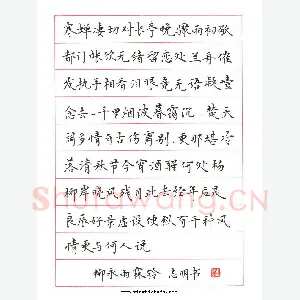 寒蝉凄切对长亭晚骤雨初歇
都门帐饮无绪留恋处兰舟催
发执手相看泪眼竟无语凝噎
念去一千里烟波暮霭沉 楚天
阔多情自古伤离别更那堪冷
落清秋节今宵酒醒何处杨
柳岸晓风残月此去经年应是
良辰好景虚设便纵有千种风
情更与何人说
柳永雨霖铃 志明书
Shufawang.CN